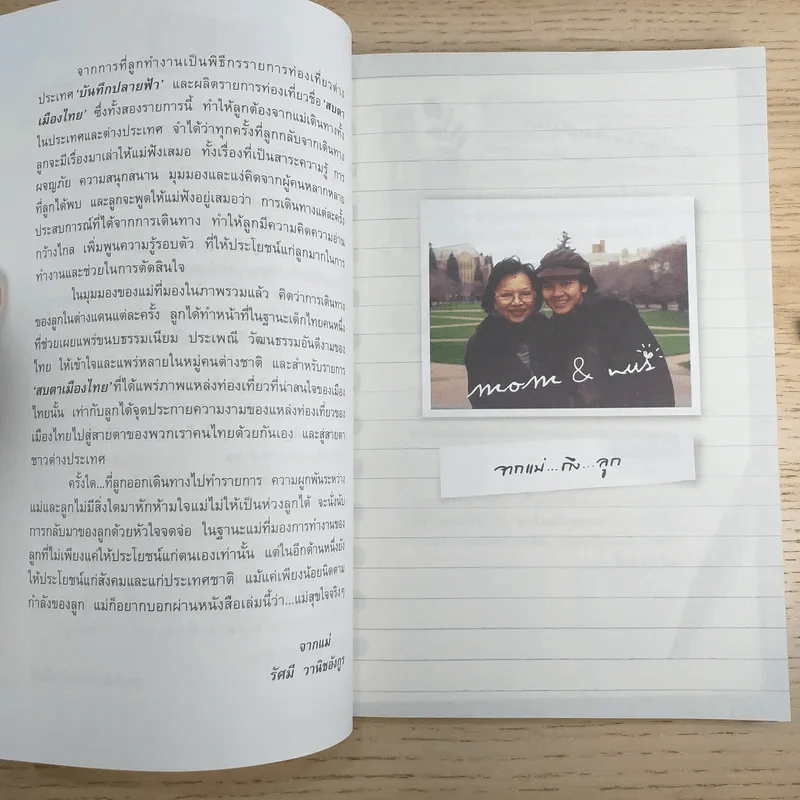 จากการที่ลูกทำงานเป็นพิธีกรรายการท่องเที่ยวต่าง
ประเทศ ‘บันทึกปลายฟ้า’ และผลิตรายการท่องเที่ยวชื่อ ‘สบตา
เมืองไทย’ ซึ่งทั้งสองรายการนี้ ทำให้ลูกต้องจากแม่เดินทางทั้ง
ในประเทศและต่างประเทศ จำได้ว่าทุกครั้งที่ลูกกลับจากเดินทาง
ลูกจะมีเรื่องมาเล่าให้แม่ฟังเสมอ ทั้งเรื่องที่เป็นสาระความรู้ การ
ผจญภัย ความสนุกสนาน มุมมองและแง่คิดจากผู้คนหลากหลาย
ที่ลูกได้พบ และลูกจะพูดให้แม่ฟังอยู่เสมอว่า การเดินทางแต่ละครั้ง
ประสบการณ์ที่ได้จากการเดินทาง ทำให้ลูกมีความคิดความอ่าน
กว้างไกล เพิ่มพูนความรู้รอบตัว ที่ให้ประโยชน์แก่ลูกมากในการ
ทำงานและช่วยในการตัดสินใจ
ในมุมมองของแม่ที่มองในภาพรวมแล้ว คิดว่าการเดินทาง
ของลูกในต่างแดนแต่ละครั้ง ลูกได้ทำหน้าที่ในฐานะเด็กไทยคนหนึ่ง
ที่ช่วยเผยแพร่ขนบธรรมเนียม ประเพณี วัฒนธรรมอันดีงามของ
ไทย ให้เข้าใจและแพร่หลายในหมู่คนต่างชาติ และสำหรับรายการ
‘สบตาเมืองไทย’ ที่ได้แพร่ภาพแหล่งท่องเที่ยวที่น่าสนใจของเมือง
ไทยนั้น เท่ากับลูกได้จุดประกายความงามของแหล่งท่องเที่ยวของ
เมืองไทยไปสู่สายตาของพวกเราคนไทยด้วยกันเอง และสู่สายตา
ชาวต่างประเทศ
ครั้งใด...ที่ลูกออกเดินทางไปทำรายการ ความผูกพันระหว่าง
แม่และลูกไม่มีสิ่งใดมาหักห้ามใจแม่ไม่ให้เป็นห่วงลูกได้ จะนั่งนับ
การกลับมาของลูกด้วยหัวใจจดจ่อ ในฐานะแม่ที่มองการทำงานของ
ลูกที่ไม่เพียงแค่ให้ประโยชน์แก่ตนเองเท่านั้น แต่ในอีกด้านหนึ่งยัง
ให้ประโยชน์แก่สังคมและแก่ประเทศชาติ แม้แค่เพียงน้อยนิดตาม
กำลังของลูก แม่ก็อยากบอกผ่านหนังสือเล่มนี้ว่า...แม่สุขใจจริงๆ
จากแม่
รัศมี วานิชอังกูร
mom & nus
จากแม่...ถึง...ลูก